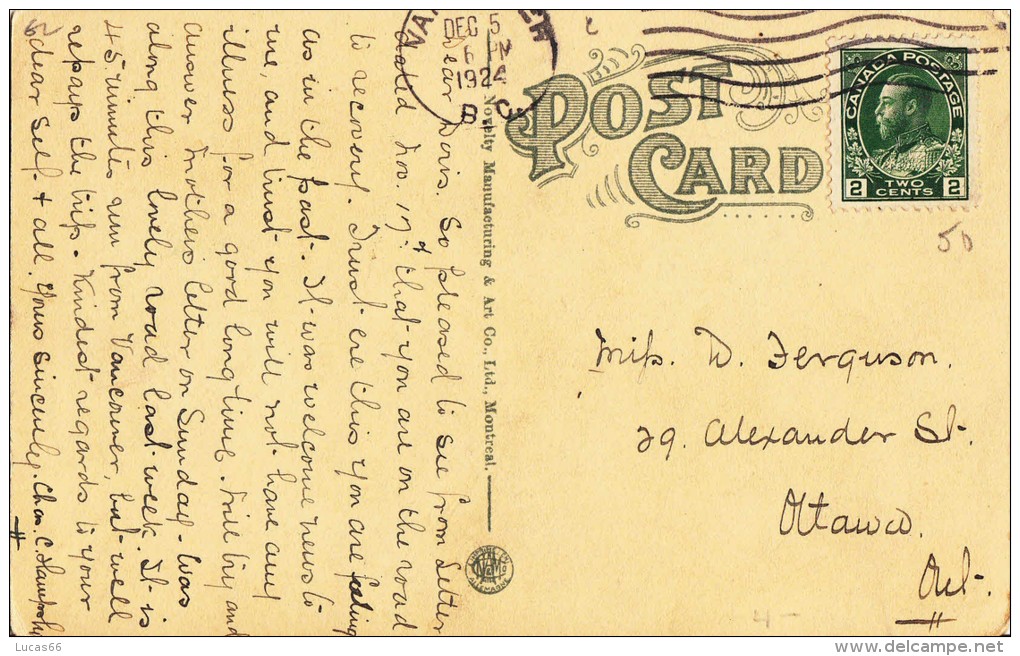 VANCOUVER
DEC 5
6 PM
1924
B.C.
POST
CARD
CANADA POSTAGE
2 TWO CENTS 2
50
Miss D. Ferguson.
29. Alexander St.
Ottawa.
Ont.
Novelty Manufacturing & Art Co., Ltd., Montreal.
Dear Doris. So pleased to see from Letter
dated Nov. 17th that you are on the road
to recovery. Trust ere this you are feeling
as in the past. It was welcome news to
me, and trust you will not have any
illness for a good long time. Will try and
answer Mothers letter on Sunday. Was
along this lovely road last week. It is
45 minutes run from Vancouver, but well
repays the trip. Kindest regards to your
dear self & all. Yours Sincerely. Chas. C.
Lucas66
www.delcampe.net